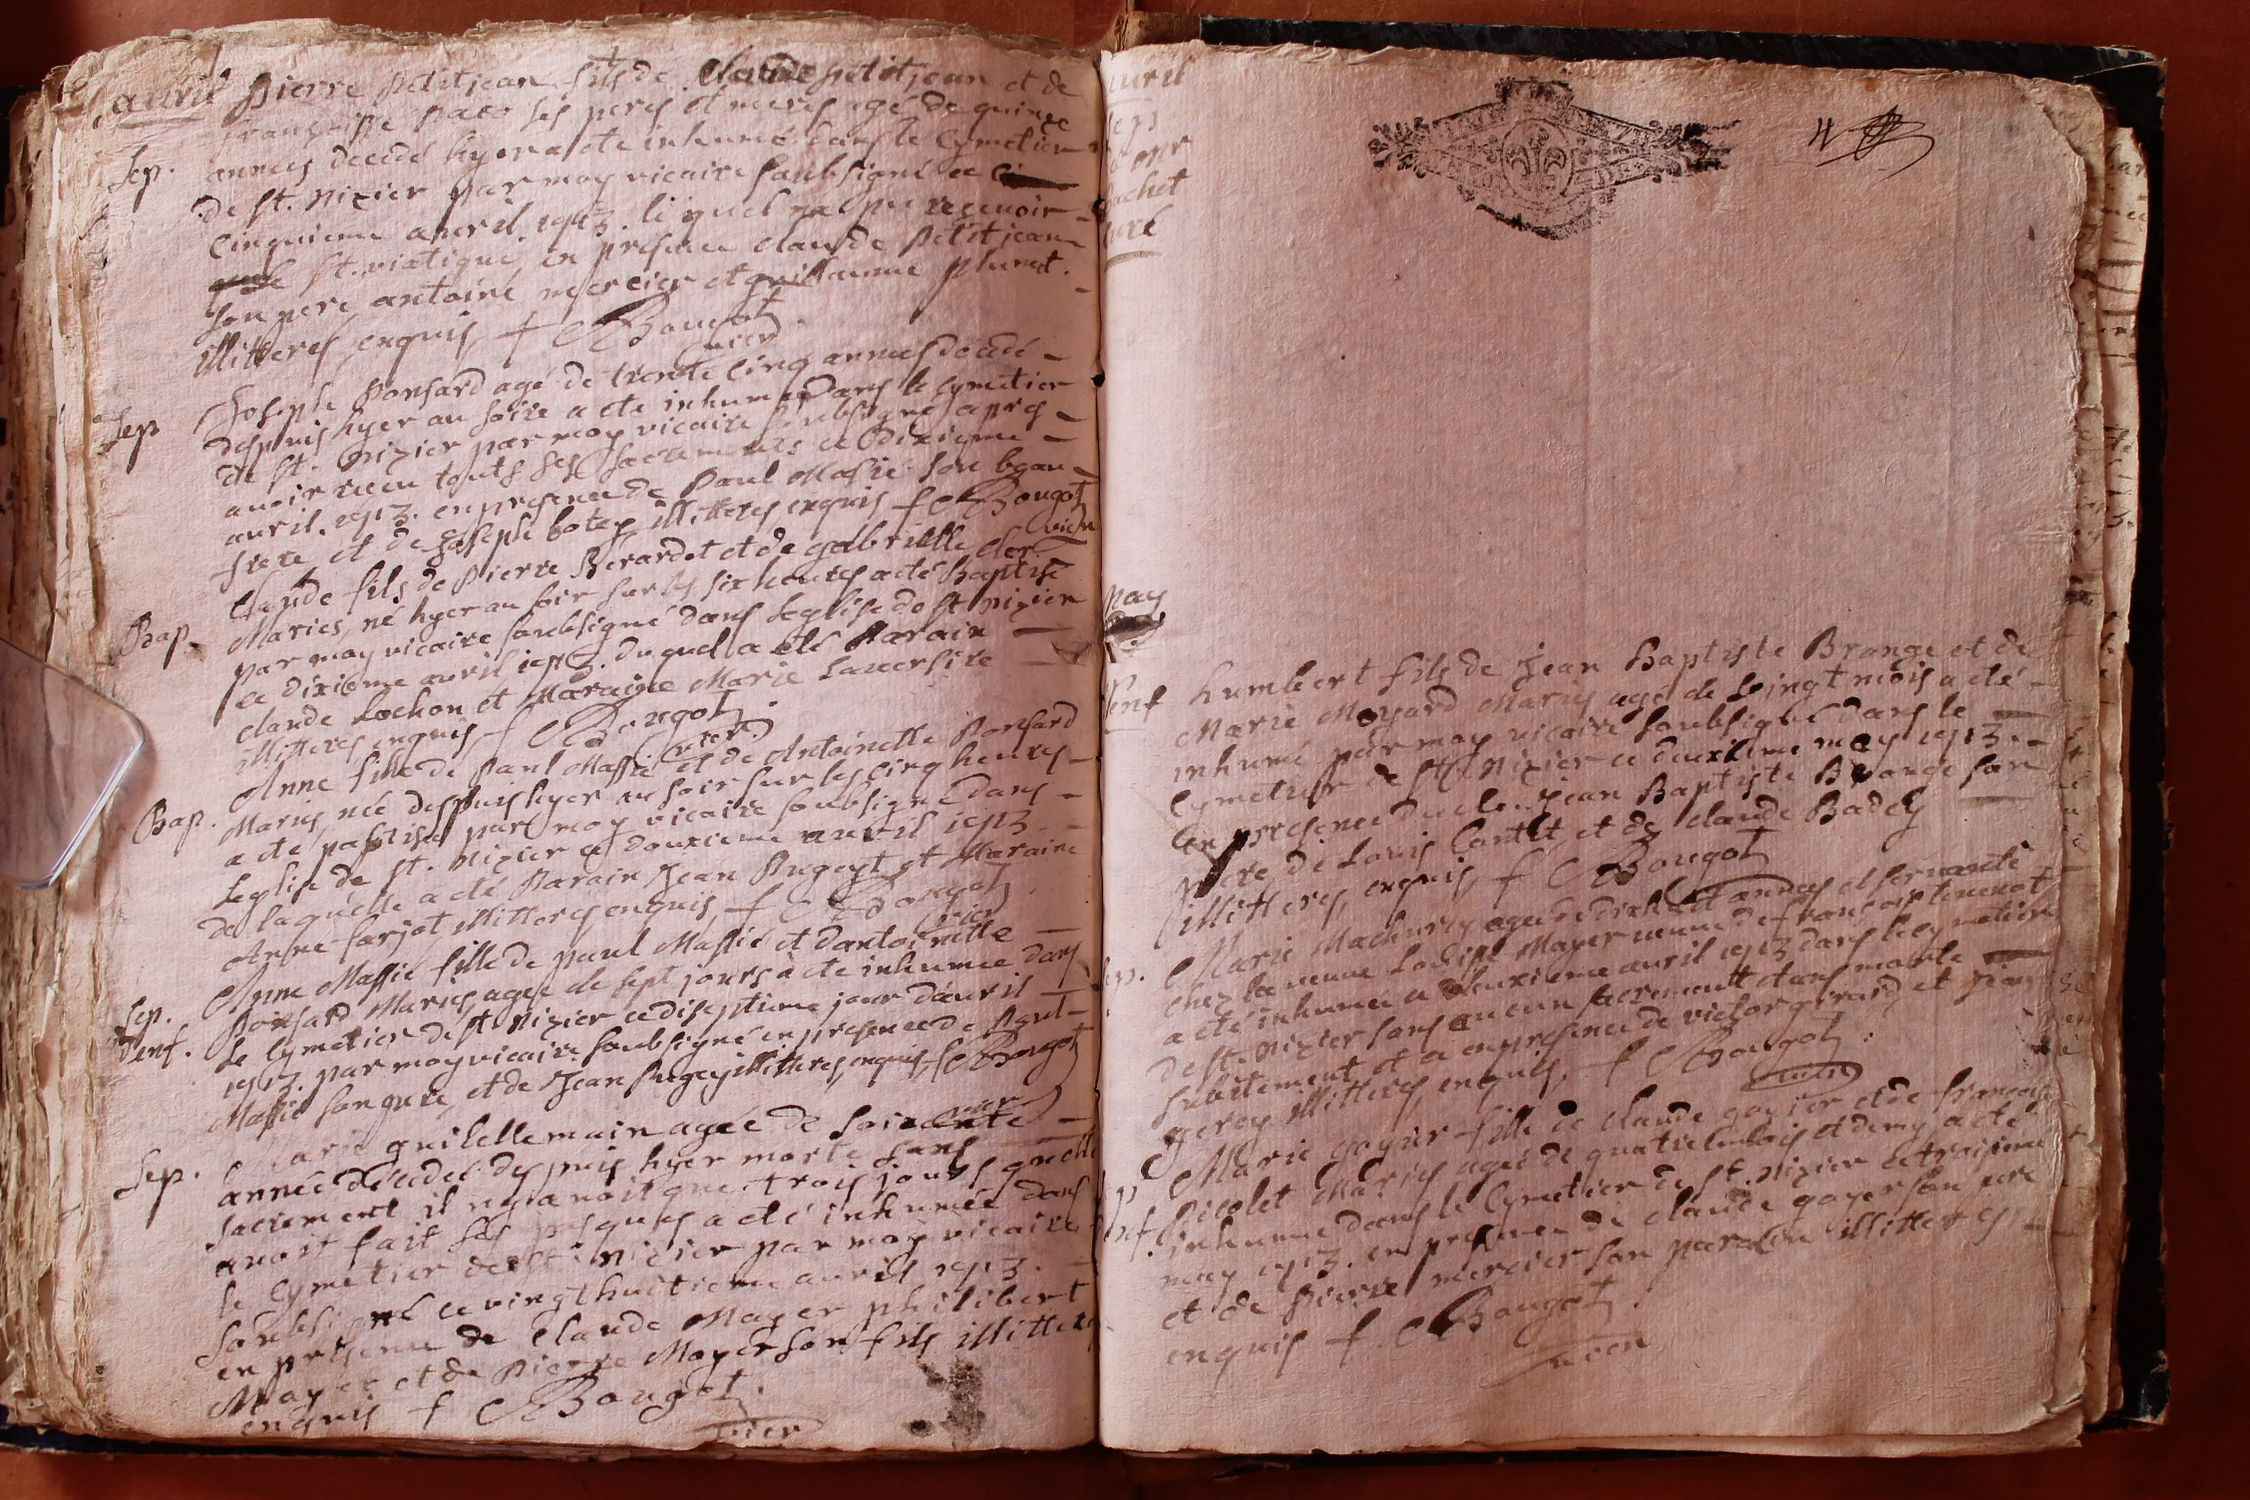 avril Pierre Petitjean fils de Claude petitjean et de
françoise Pato ses peres et meres agé de quinze
Sep. années decedé hyer a ete inhumé dans le Cymetier
de st. nizier par moy vicaire soubsigné ce
Cinquieme avril 1713. lequel na pu recevoir
st. viatique en presence claude Petitjean
son pere antoine mercier et guillaume plumet.
illitteres enquis f Bougot
vicr
Sep Joseph Ponsard agé de trente cinq années decedé
despuis hyer au soire a ete inhumé dans le Cymetier
de st. nizier par moy vicaire soubsigné apres
avoir receu touts ses sacrements ce dixieme
avril. 1713. en presence de Paul Massié son beau
frere et de Joseph botex illitteres enquis f Bougot
vicr
Claude fils de Pierre Berardet et de gabrielle cler
Bap. Maries, né hyer au soir sur les six heures a eté Baptisé
par moy vicaire soubsigné dans Leglise de st nizier
ce dixieme avril 1713. duquel a eté Parain
claude Lochon et Maraine Marie
illitteres enquis f Bougot.
vicr
Anne fille de Paul Massié et de Antoinette Ponsard
Bap. Maries, née despuis hyer au soir sur les cinq heures
a ete baptisée par moy vicaire soubsigné dans
Leglise de st. nizier ce douzieme avril 1713
de laquelle a eté Parain Jean Pugeyt et Maraine
Anne farjot illitteres enquis, f Bougot
vicr
Sep. Anne Massié fille de paul Massié et dantoinette
denf. Ponsard Maries agee de sept jours a ete inhumee dans
le Cymetier de st nizier ce diseptieme jour d'avril
1713. par moy vicaire soubsigné en presence de Paul
Massié son pere, et de Jean Pugey illitteres enquis, f Bougot
vicr
Sep. Marie guillemain agée de soixente
année decedée despuis hyer morte sans
sacrement il ny avoit que trois jours quelle
avoit fait ses pasques a eté inhumée dans
le Cymetier de st. nizier par moy vicaire
soubsigné ce vingt huitieme avril 1713.
en presence de Claude Mayer philibert
Mayer et de Pierre Mayer son fils illitteres
enquis f Bougot.
vicr
may
d'enf humbert fils de Jean Baptiste Brange et de
Marie Moyard Maries agé de vingt mois a eté
inhumé par moy vicaire soubsigné dans le
Cymetier de st. nizier ce deuxieme may 1713.
en presence du Jean Baptiste Brange son
pere de Louis Contet et de claude Badey
illitteres, enquis, f Bougot
Sep. Marie Machurey agee de dixhuit années et servante
chez la veuve Louise Mayer veuve de françois
a eté inhumee ce deuxieme avril 1713 dans le Cymetier
de st. nizier sans aucun sacrement etant morte
subitement et a en presence de victor girard et Jean
geroy illitteres, enquis, f Bougot.
vicr
Marie goyer fille de claude goyer et de françoise
Nicolet Maries agée de quatre mois et demy a eté
enf. inhumee dans le Cymetier de st. nizier ce troisieme
may 1713. en presence de claude goyer son pere
et de pierre mercier son parain illitteres
enquis f. Bougot.
vicr